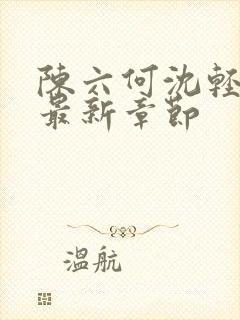 陳六何沈輕
最新章節
溫航